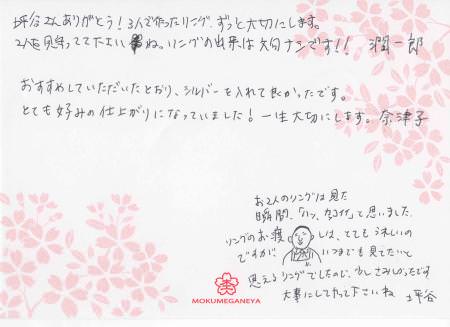 坪谷さんありがとう!3人で作ったリング、ずっと大切にします。
2人を見守っててださいね。リングの出来は文句ナシです!! 潤一郎
おすすめしていただいたとおり、シルバーを入れて良かったです。
とても好みの仕上がりになっていました!一生大切にします。奈津子
お2人のリングは見た
瞬間、「ハッ、カッコイイ」と思いました。
リングのお渡しは、とてもうれしいの
ですが いつまでも見てたいと
思えるリングでしたので、少しさみしかったです
大事にしてやって下さいね 坪谷
MOKUMEGANEYA